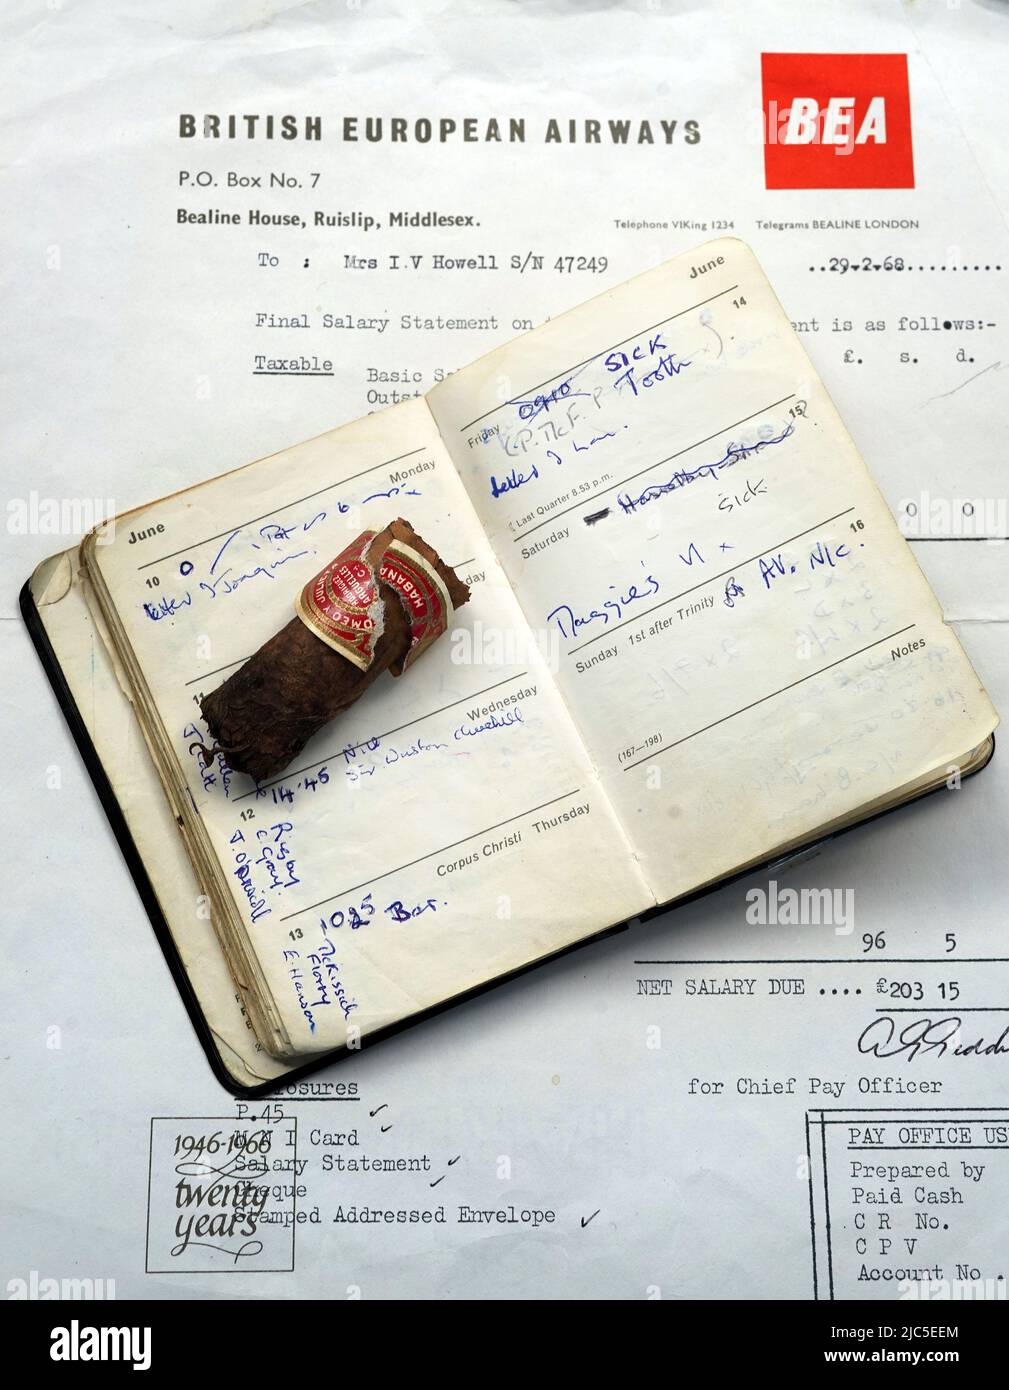 BEA
BRITISH EUROPEAN AIRWAYS
P.O. Box No. 7
Bealine House, Ruislip, Middlesex.
Telephone VIKing 1234 Telegrams BEALINE LONDON
To : Mrs I.V Howell S/N 47249
..29.2.68.........
Final Salary Statement on
ent is as follows:-
£. s. d.
Taxable
Basic
Outst
0 0
June
Monday
10
11
Wednesday
14.45 Nice
Sir Winston Churchill
12
Rigby
C. Gray.
J. O'Driscoll
Corpus Christi Thursday
13
1025 Ber.
McKissick
Florry
E. Hanson
HABANA
ROMEO Y JULI
ARGUELLES
Y Ca
June
14
Friday
0910 SICK
Tooth
Last Quarter 8.53 p.m.
15
Saturday
SICK
16
Maggie's
Sunday 1st after Trinity
AV. N/C.
Notes
(167—198)
96 5
NET SALARY DUE .... £203 15
for Chief Pay Officer
osures
P.45
N I Card
Salary Statement
Cheque
Stamped Addressed Envelope
1946-1966
twenty
years
PAY OFFICE US
Prepared by
Paid Cash
C R No.
C P V
Account No .
alamy
Image ID: 2JC5EEM
www.alamy.com